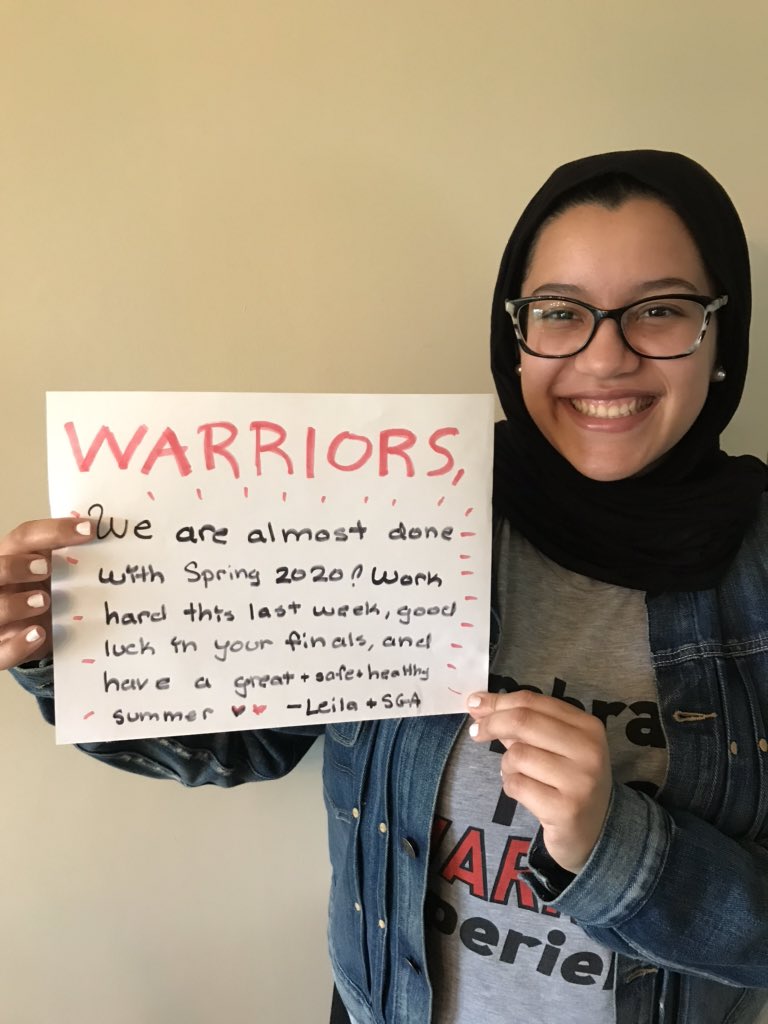 WARRIORS,
We are almost done
with Spring 2020! Work
hard this last week, good
luck in your finals, and
have a great + safe + healthy
summer ♥♥ -Leila + SGA
mbra
WAR
perie